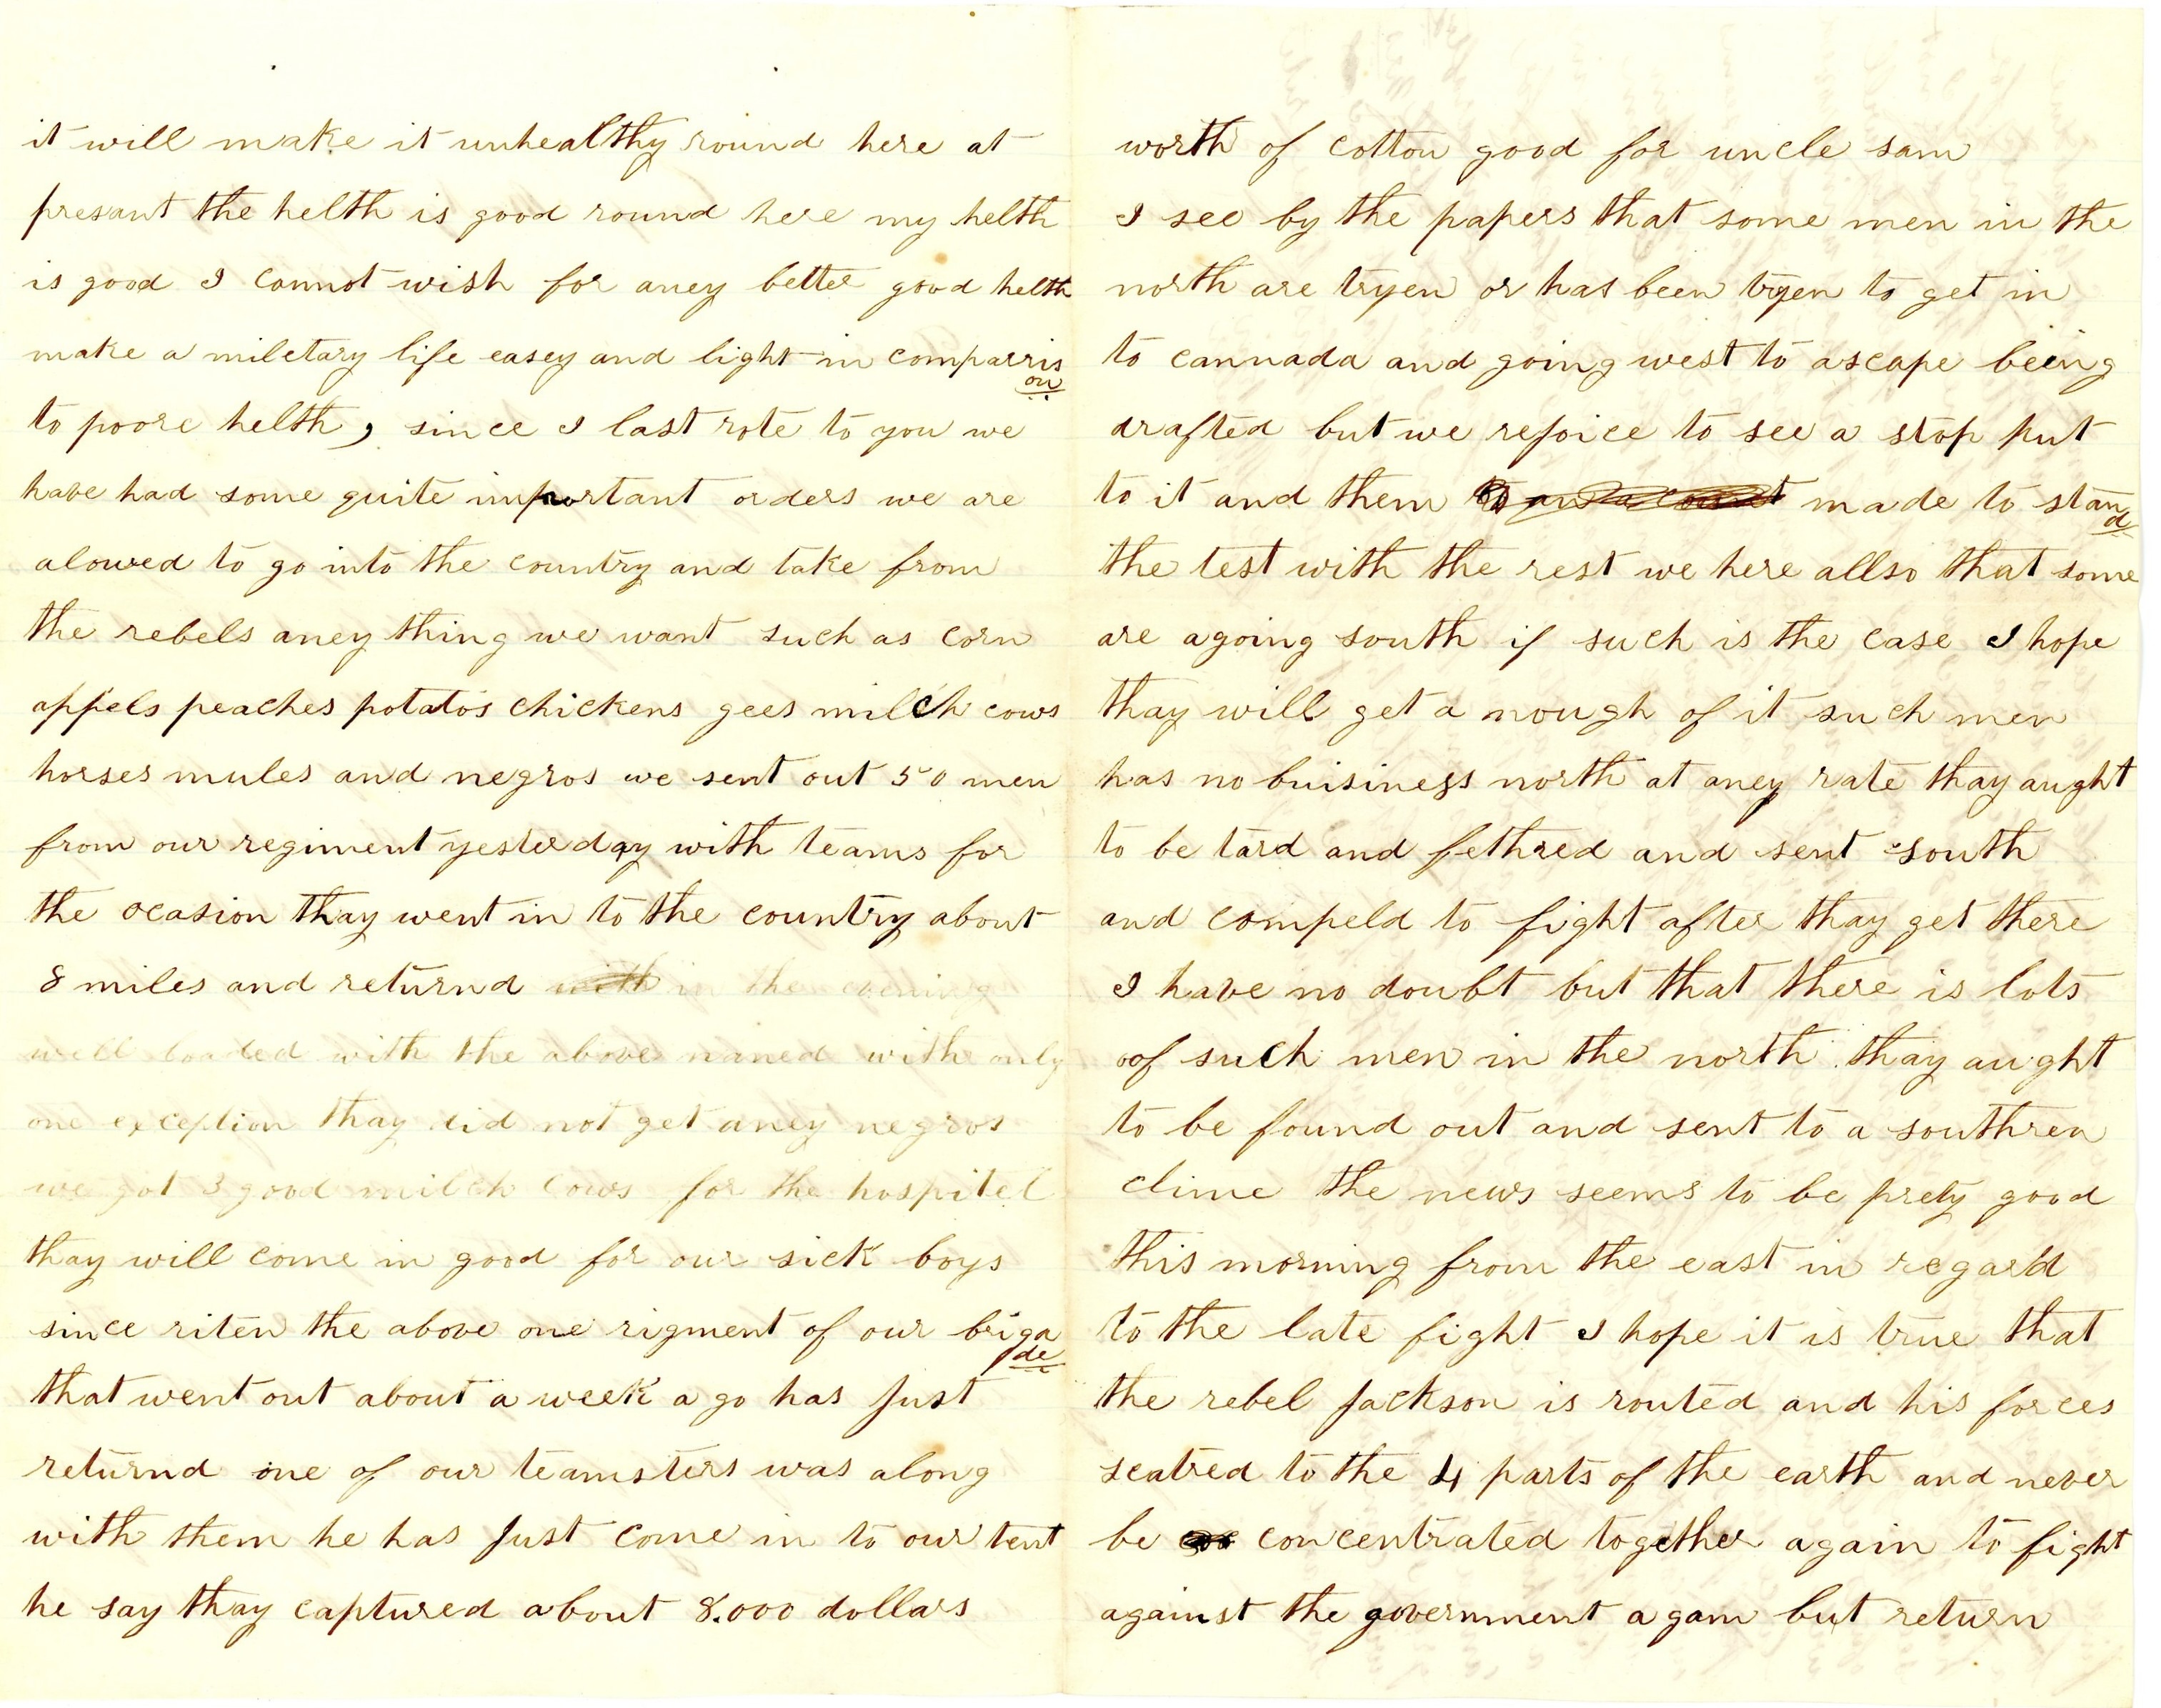 it will make it unhealthy round here at
presant the helth is good round here my helth
is good I cannot wish for aney better good helth
make a miletary life easey and light in comparris
on
to poore helth, since I last rote to you we
have had some quite important orders we are
alowed to go into the country and take from
the rebels aney thing we want such as corn
appels peaches potatos chickens gees milch cows
horses mules and negros we sent out 50 men
from our regiment yesterday with teams for
the ocasion thay went in to the country about
8 miles and returnd with in the evening
well loaded with the above named with only
one exception thay did not get aney negros
we got 3 good milch cows for the hospitel
thay will come in good for our sick boys
since riten the above one rigment of our briga
de
that went out about a week a go has Just
returnd one of our teamsters was along
with them he has Just come in to our tent
he say thay captured about 8.000 dollars
worth of cotton good for uncle sam
I see by the papers that some men in the
north are tryen or has been tryen to get in
to cannada and going west to ascape being
drafted but we rejoice to see a stop put
to it and them made to stan
d
the test with the rest we here allso that some
are agoing south if such is the case I hope
thay will get a nough of it such men
has no buisiness north at aney rate thay aught
to be tard and fethred and sent south
and compeld to fight after thay get there
I have no doubt but that there is lots
oof such men in the north thay aught
to be found out and sent to a southren
clime the news seems to be prety good
this morning from the east in regard
to the late fight I hope it is true that
the rebel Jackson is routed and his forces
scatred to the 4 parts of the earth and never
be concentrated together again to fight
against the government agam but return